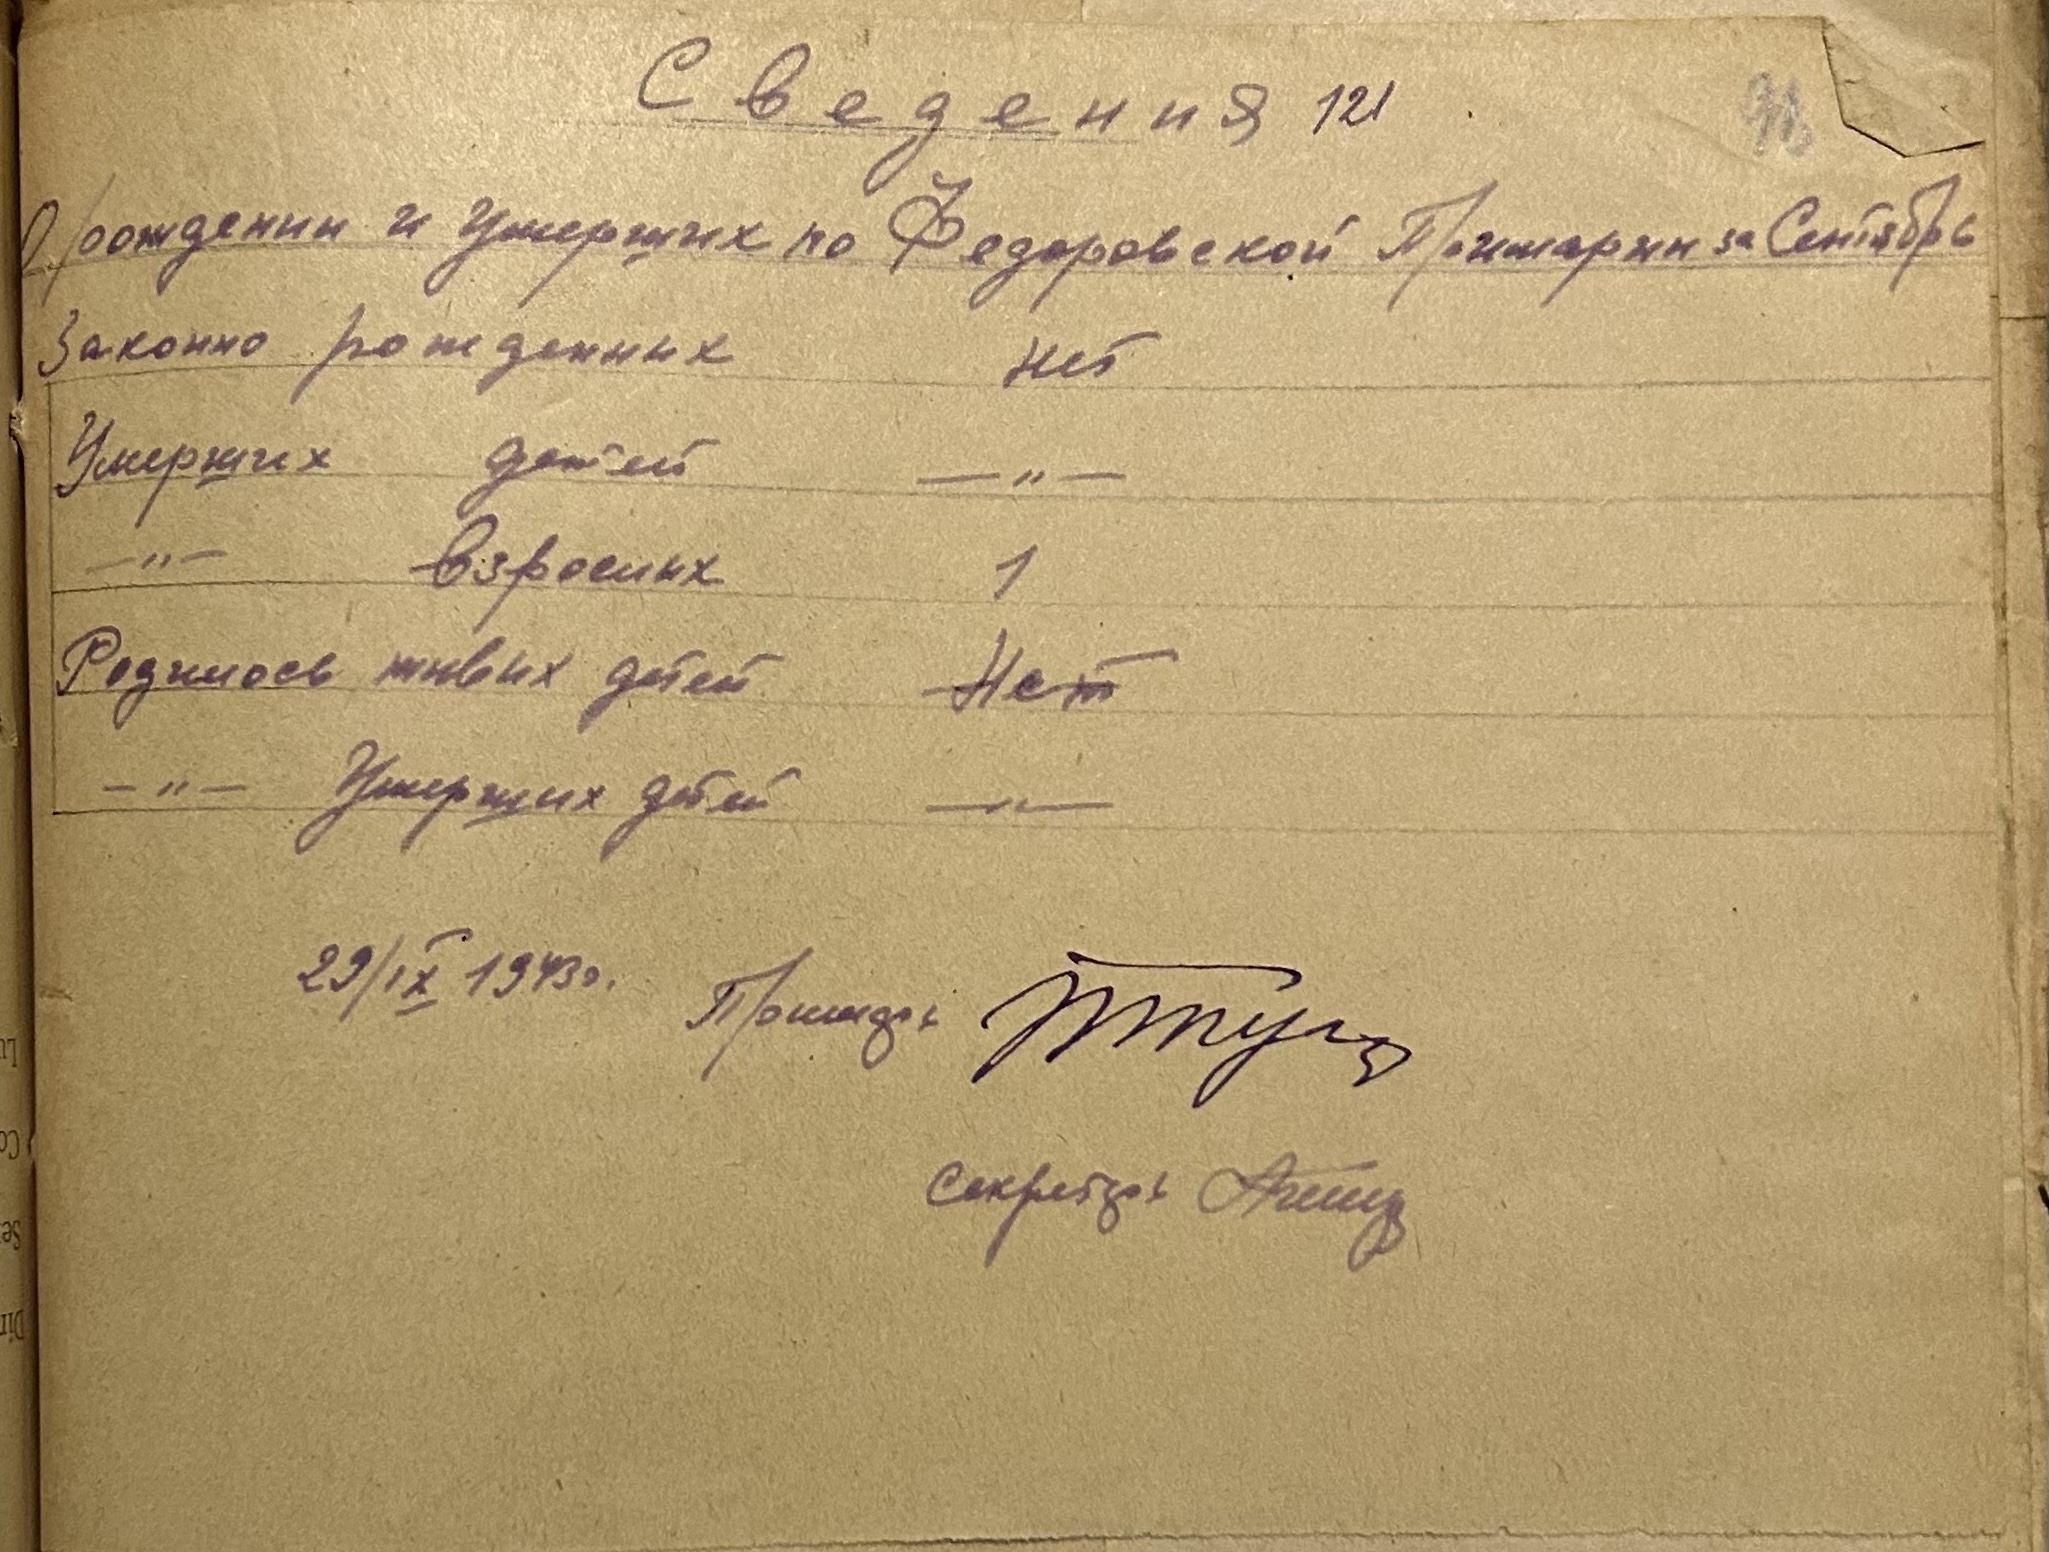 Сведения 121
О рождении и умерших по Федоровской Примарии за Сентябрь
Законно рожденных Нет
Умерших детей —"—
—"— взрослых 1
Родилось живых детей Нет
—"— Умерших детей —"—
29/IX 1943г. Примарь
Секретарь